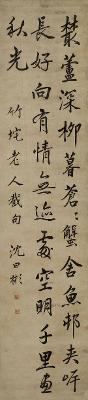 叢蘆深柳暮蒼〻蟹舍魚邨夾岸
長好向有情無迹處空明千里畫
秋光
竹垞老人截句 沈